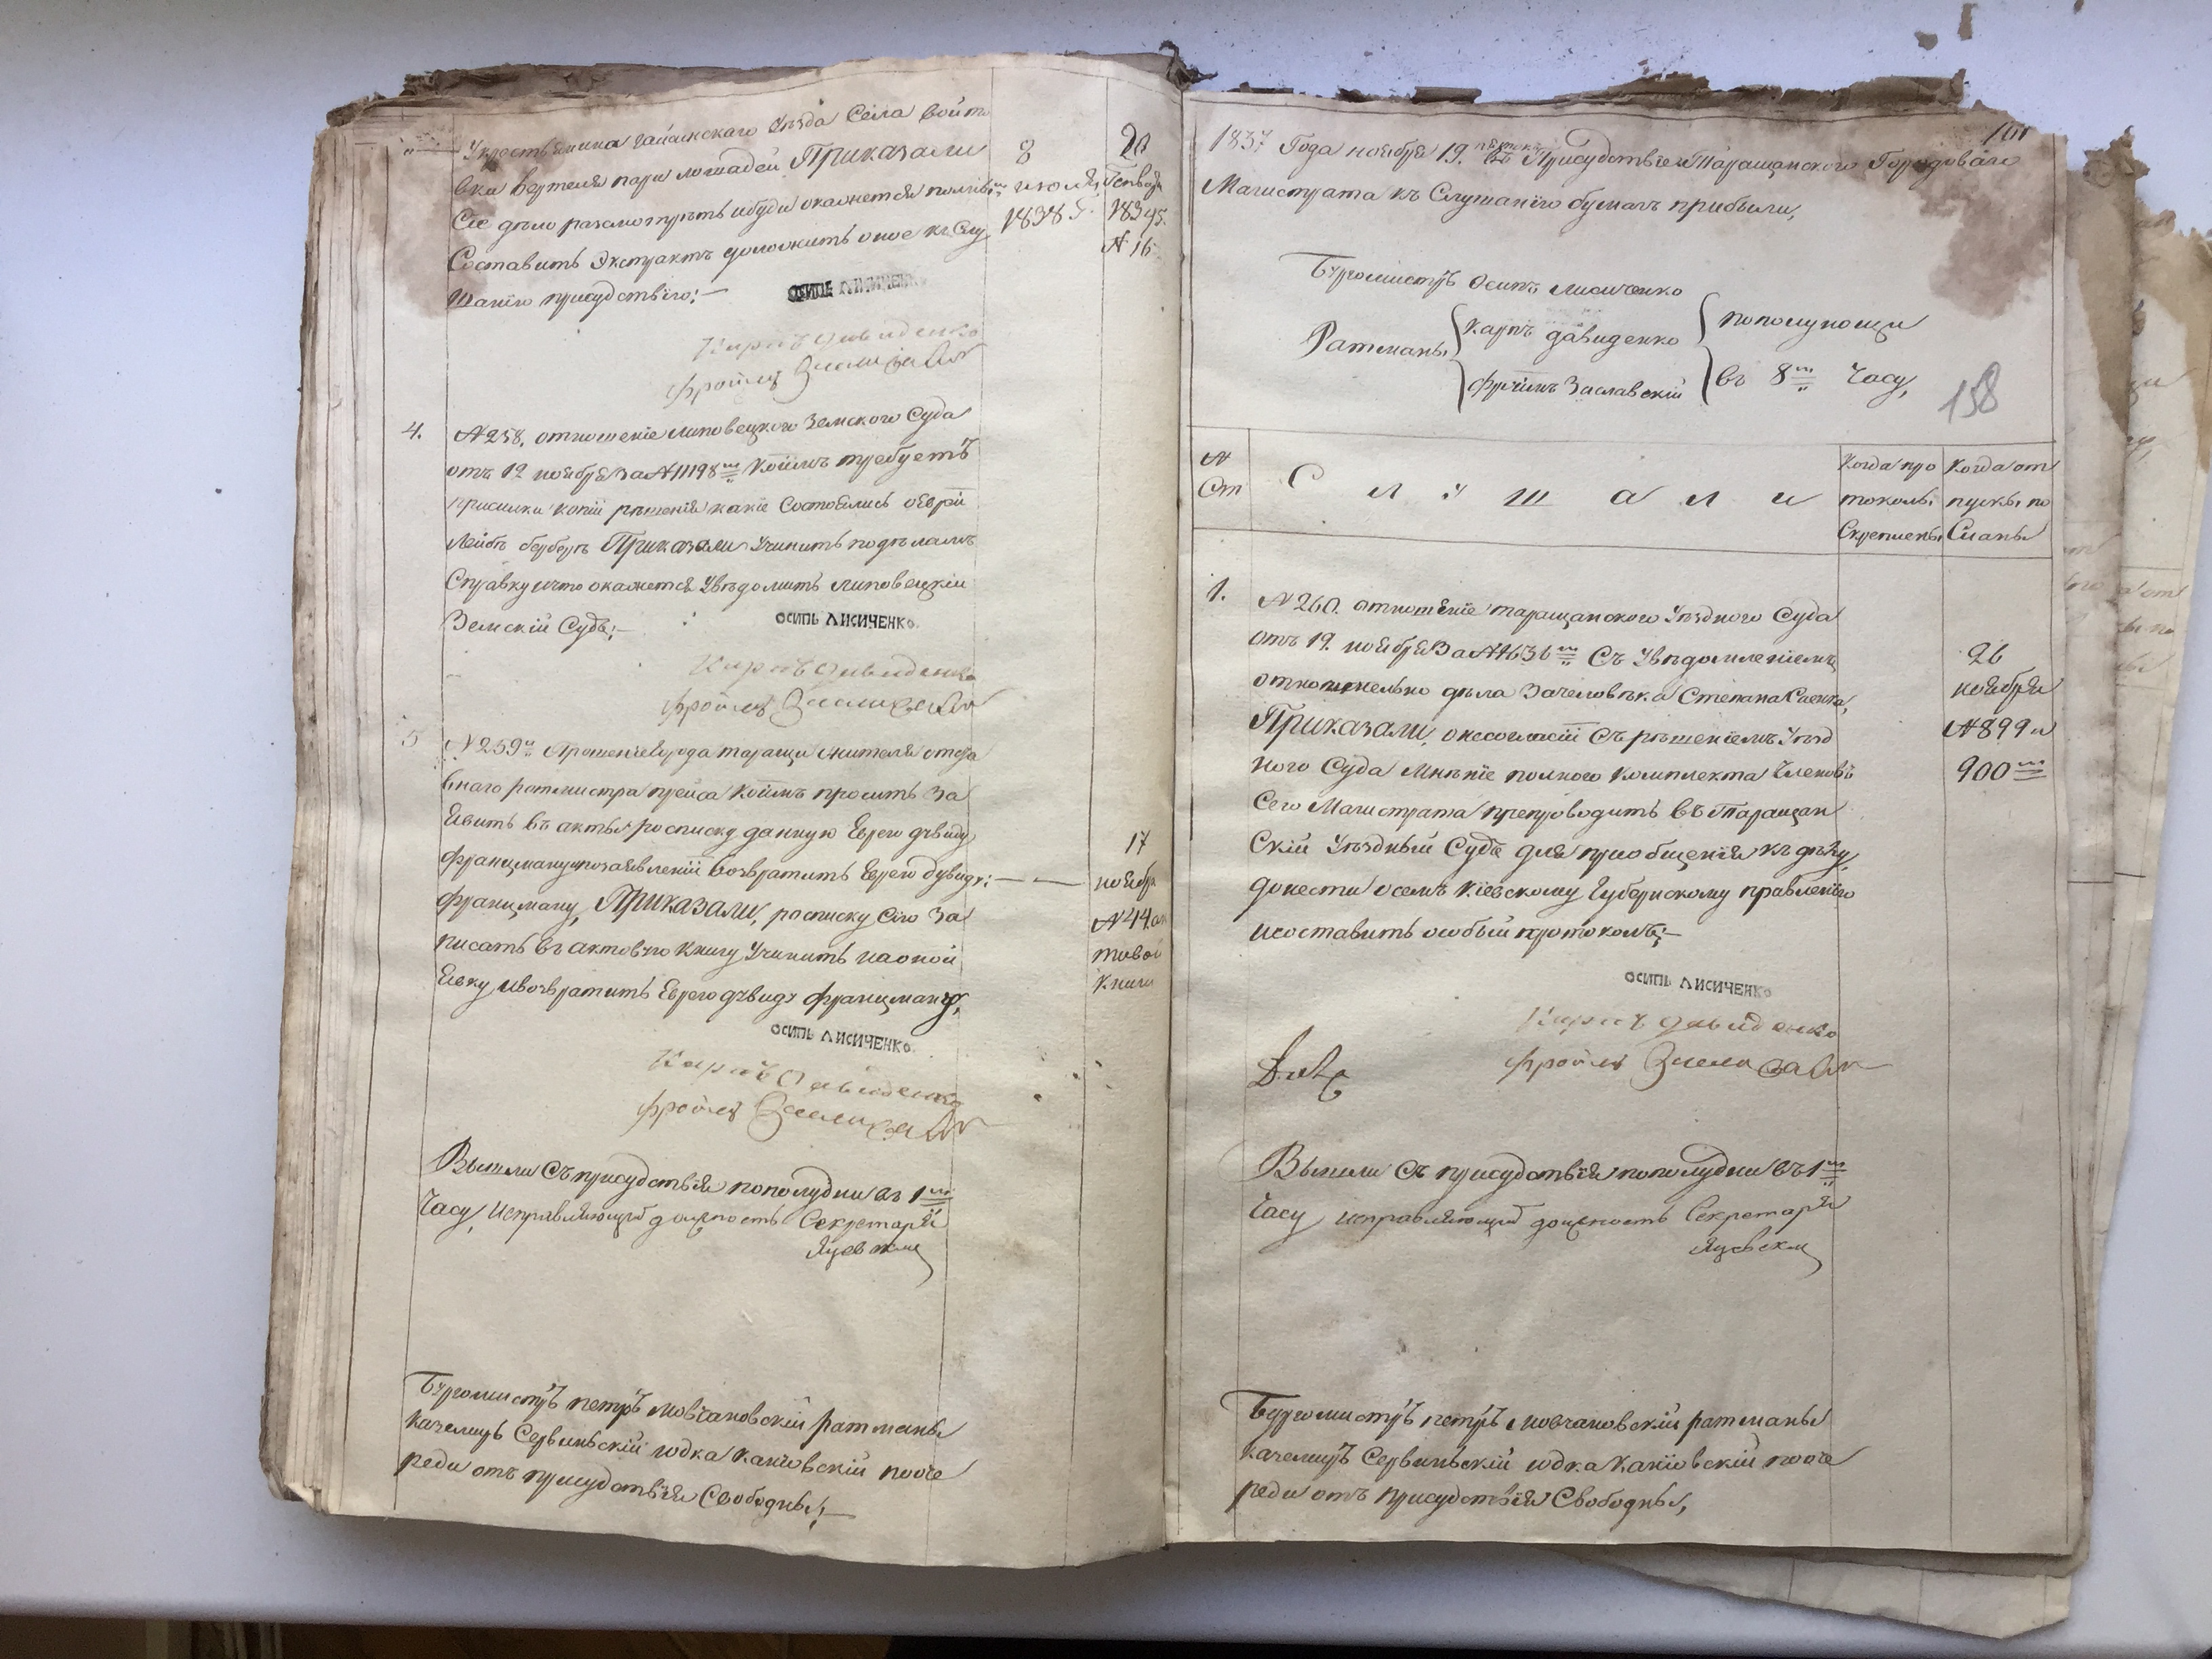 Укрестьянина гайсинскаго уѣзда Села войто
вки вертеля пари лошадей Приказали
Сіе дѣло разсмотрѣть ибуди окажется полнымъ
Составить Экстрактъ доложить оное къ Слу
шанію присудствію:—
8
июля
1838 г.
20
Генваря
1839
№ 16
ОСИПЪ ЛИСИЧЕНКО
Карпъ Давиденко
4.
№ 258. отношеніе липовецкого Земского Суда
отъ 12 ноября За № 11198 м коимъ требуетъ
присилки копіи рѣшенія какіе Состоялись оеврѣи
Лейбѣ берберѣ Приказали Учинить подѣламъ
Справку ичто окажется Увѣдомить липовецкій
Земскій Судъ;—
ОСИПЪ ЛИСИЧЕНКО.
Карпъ Давиденко
5
№ 259 Прошеніе города таращи жителя отста
внаго ротмистра прейса коимъ проситъ За
явить въ акты росписку данную Еврею дувиду
францману ипозаявленіи возвратить Еврею дувиду:— —
францману, Приказали, росписку Сію За
писать въ актовую книгу Учинить наоной
явку ивозвратить Еврею дувиду францману,
17
ноября
№ 44 ак
товой
книги
ОСИПЪ ЛИСИЧЕНКО.
Карпъ Давиденко
Вышли Съприсудствія пополудни въ 1 м
Часу, исправляющій должность Секретаря
Яцевскій
Бургомистръ петръ мовчановскій ратманы
казимиръ Сервинскій юдка каніовскій пооче
реди отъ присудствія Свободны;—
1837 Года ноября 19. въ Присудствіе Таращанского Городоваго
Магистрата къ Слушанію бумагъ прибыли,
Бургомистръ Осипъ лисиченко
Ратманы
карпъ давиденко
фроимъ Заславскій
пополуночи
въ 8 м Часу,
158
№
Ст
С л у ш а л и
Когда про
токолы
Скреплены
Когда от
пуски по
Сланы
1.
№ 260. отношеніе таращанского Уѣздного Суда
отъ 19. ноября За № 4636 м Съ Увѣдомленіемъ
относительно дѣла Зачеловѣка Степана Саенка,
Приказали, онесогласіи Съ рѣшеніемъ Уѣзд
ного Суда мнѣніе полного комплекта Членовъ
Сего Магистрата препроводить въ Таращан
Скій Уѣздный Судъ для пріобщенія къ дѣлу,
донести осемъ Кіевскому Губернскому правленію
исоставить особый протоколъ;—
26
ноября
№ 899 и
900 м
ОСИПЪ ЛИСИЧЕНКО
Карпъ Давиденко
Вышли Съ присудствія пополудни въ 1 м
Часу исправляющій должность Секретаря
Яцевскій
Бургомистръ петръ мовчановскій ратманы
казимиръ Сервинскій юдка каніовскій пооче
реди отъ присудствія Свободны,